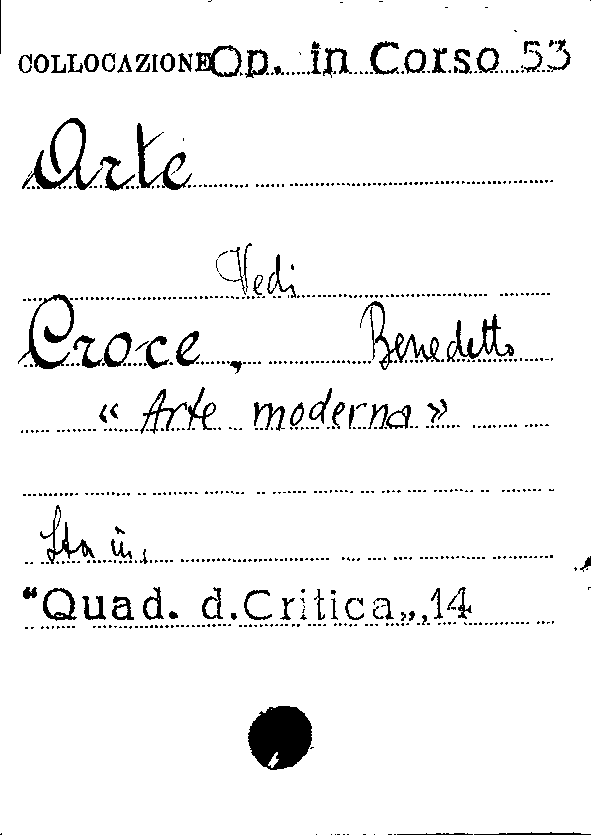 COLLOCAZIONE Op. in Corso 53
Arte
Vedi
Croce, Benedetto
« Arte moderna »
Sta in.
“Quad. d. Critica„, 14